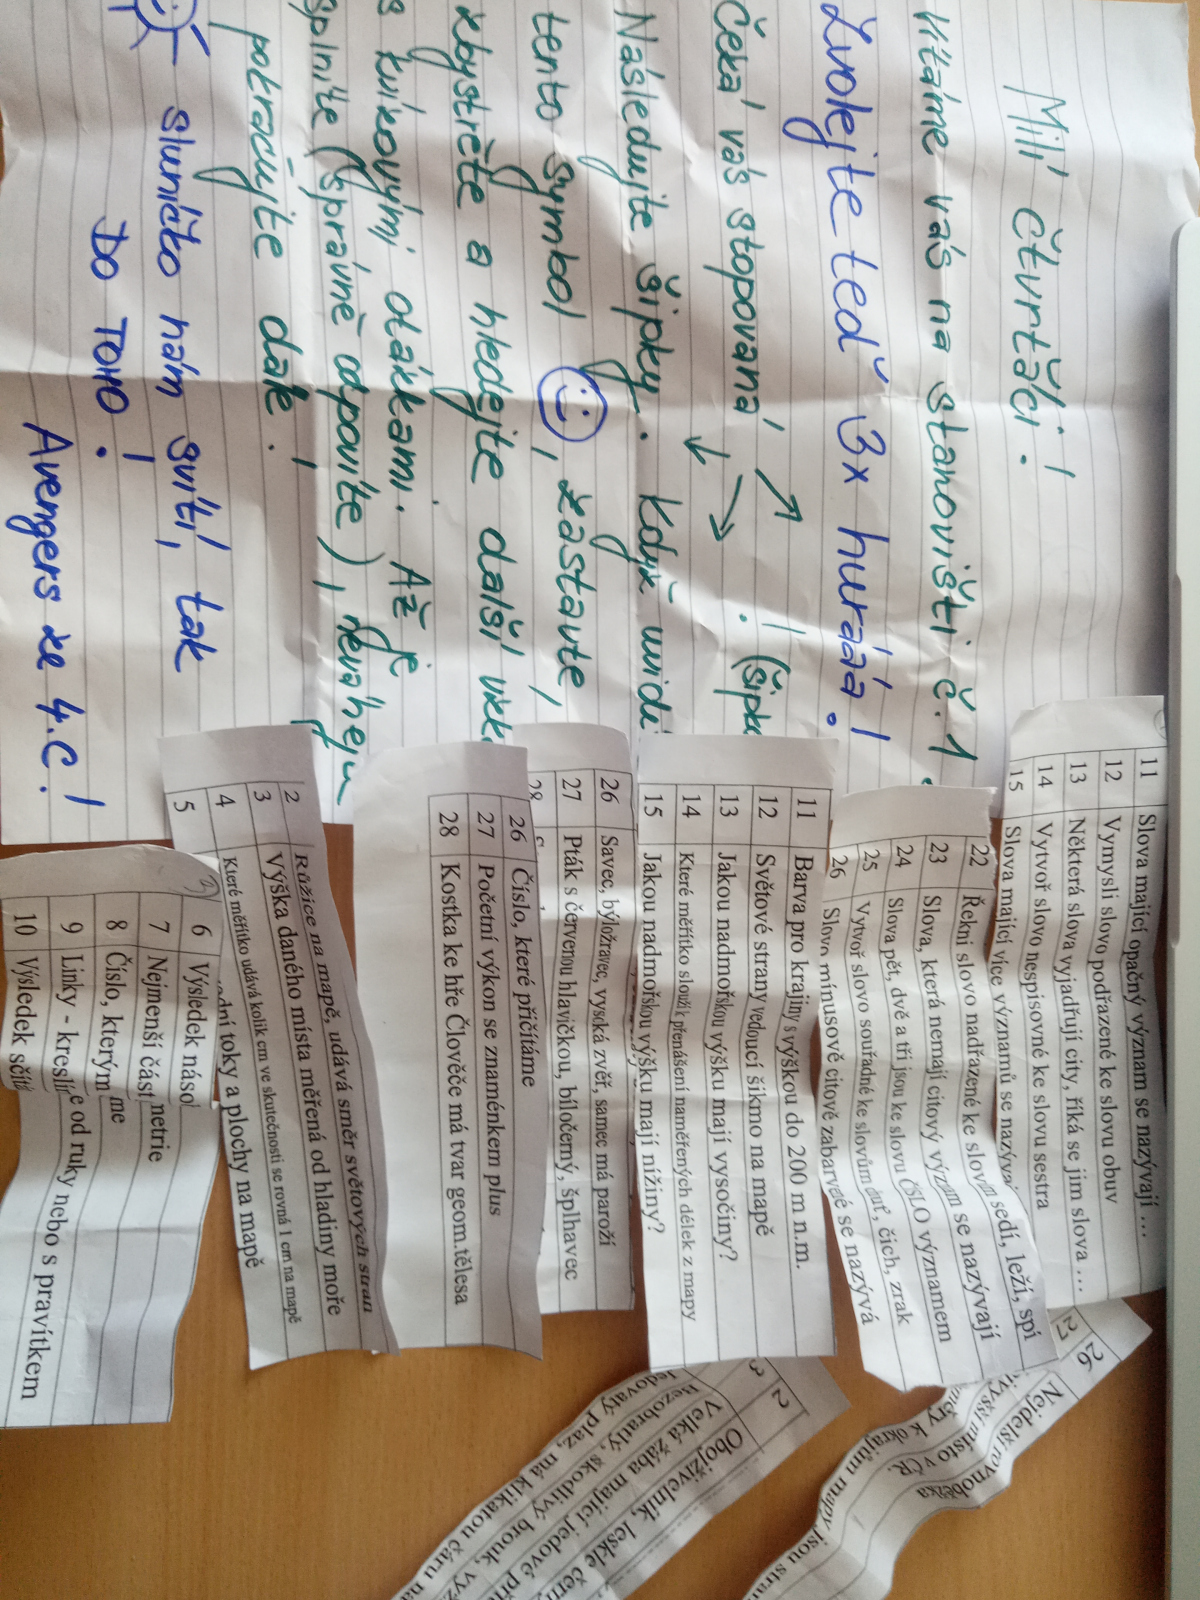 Milí čtvrťáci!
Vítáme vás na stanovišti č. 1.
Zvolejte teď 3x huráá!
Čeká vás stopovaná! (šipka
Následujte šipky. Když uvidí
tento symbol, zastavte,
zbystřete a hledejte další
s kvíkovými otázkami. Až je
splníte (správně odpovíte),
potračujte dále!
sluníčko nám svítí, tak
DO TOHO!
Avengers ze 4.C!
11 Slova mající opačný význam se nazývají …
12 Vymysli slovo podřazené ke slovu obuv
13 Některá slova vyjadřují city, říká se jim slova …
14 Vytvoř slovo nespisovné ke slovu sestra
15 Slova mající více významů se nazývají
22 Řekni slovo nadřazené ke slovům sedí, leží, spí
23 Slova, která nemají citový význam se nazývají
24 Slova pět, dvě a tři jsou ke slovu ČÍSLO významem
25 Vytvoř slovo souřadné ke slovům chuť, čich, zrak
26 Slovo mínusově citově zabarvené se nazývá
11 Barva pro krajiny s výškou do 200 m n.m.
12 Světové strany vedoucí šikmo na mapě
13 Jakou nadmořskou výšku mají vysočiny?
14 Které měřítko slouží k přenášení naměřených délek z mapy
15 Jakou nadmořskou výšku mají nížiny?
26 Savec, býložravec, vysoká zvěř, samec má paroží
27 Pták s červenou hlavičkou, bíločerný, šplhavec
28
26 Číslo, které přičítáme
27 Početní výkon se znaménkem plus
28 Kostka ke hře Člověče má tvar geom.tělesa
2 Růžice na mapě, udává směr světových stran
3 Výška daného místa měřená od hladiny moře
4 Které měřítko udává kolik cm ve skutečnosti se rovná 1 cm na mapě
5 vodní toky a plochy na mapě
6 Výsledek násob
7 Nejmenší část netrie
8 Číslo, kterým me
9 Linky - kreslíme od ruky nebo s pravítkem
10 Výsledek sčítá
26 Nejdelší rovnoběžka
27 vyšší místo v ČR.
měry k okrajům mapy jsou stran
2 Obojživelník, leskle čern
3 Velká žába mající jedové při
Bezobratlý, škodlivý brouk, vyž
Jedovatý plaz, má klikatou čáru na